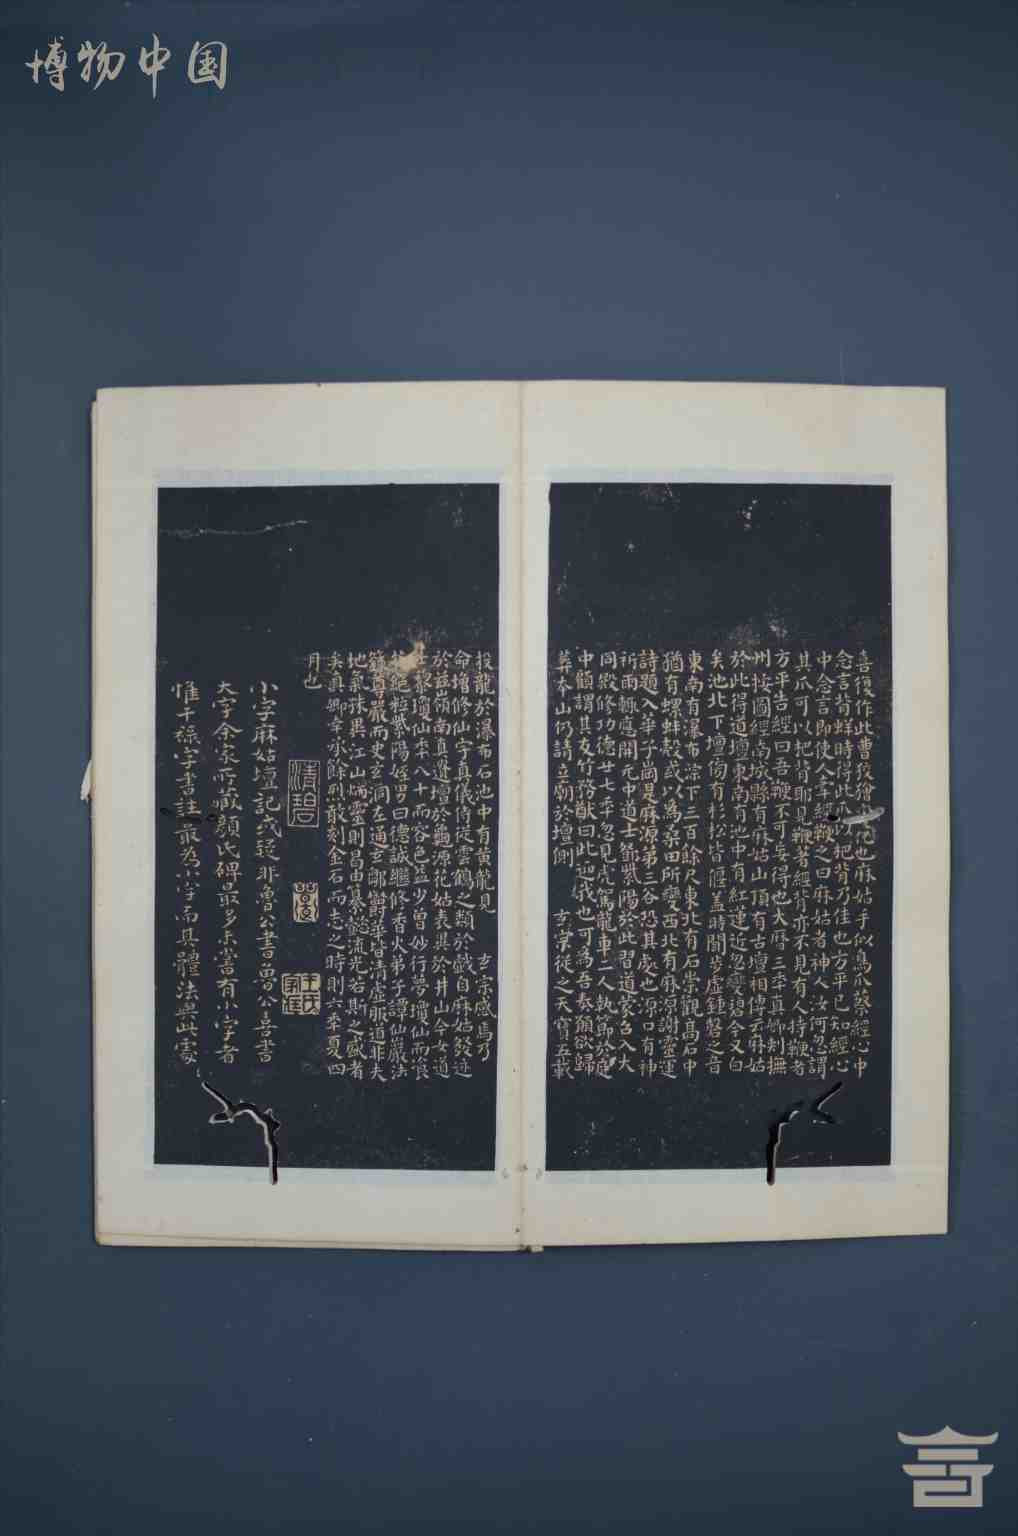 博物中国
喜復作此曹狡獪變化也麻姑手似鳥爪蔡經心中
念言背蛘時得此爪以杷背乃佳也方平已知經心
中念言即使人牽經鞭之曰麻姑者神人汝何忽謂
其爪可以杷背耶見鞭著經背亦不見有人持鞭者
方平告經曰吾鞭不可妄得也大曆三年真卿刺撫
州按圖經南城縣有麻姑山頂有古壇相傳云麻姑
於此得道壇東南有池中有紅蓮近忽變碧今又白
矣池北下壇傍有杉松皆偃蓋時聞步虛鍾磬之音
東南有瀑布淙下三百餘尺東北有石崇觀高石中
猶有螺蚌殼或以為桑田所變西北有麻源謝靈運
詩題入華子崗是麻源第三谷恐其處也源口有神
祈雨輒應開元中道士鄧紫陽於此習道蒙召入大
同殿修功德廿七年忽見虎駕龍車二人執節於庭
中顧謂其友竹務猷曰此迎我也可為吾奏願欲歸
葬本山仍請立廟於壇側 玄宗從之天寶五載
投龍於瀑布石池中有黃龍見 玄宗感焉乃
命增修仙宇真儀侍從雲鶴之類於戲自麻姑發迹
於茲嶺南真遺壇於龜源花姑表異於井山今女道
黎瓊仙年八十而容色益少曾妙行夢瓊仙而飡
絕粒紫陽姪男曰德誠繼修香火弟子譚仙巖法
籙尊嚴而史玄洞左通玄鄒鬱華皆清虛服道非夫
地氣殊異江山炳靈則曷由纂懿流光若斯之盛者
矣真卿幸承餘烈敢刻金石而志之時則六年夏四
月也
清碧
小字麻姑壇記或疑非魯公書魯公喜書
大字余家所藏顏氏碑最多未嘗有小字者
惟干祿字書註最為小字而其體法與此